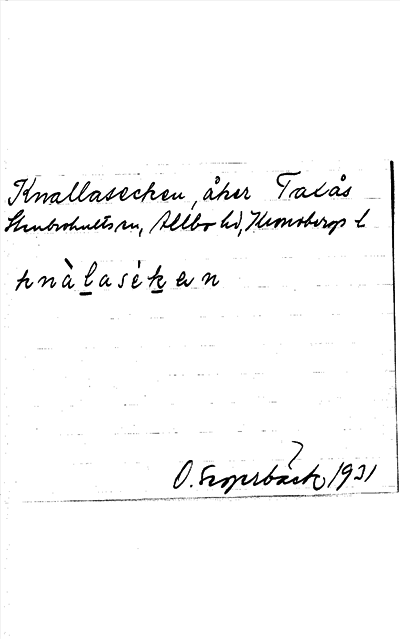 Knallasecken, åker Taxås
Stenbrohults sn, Allbo hd, Kronobergs l
knàlaséken
O. 1931